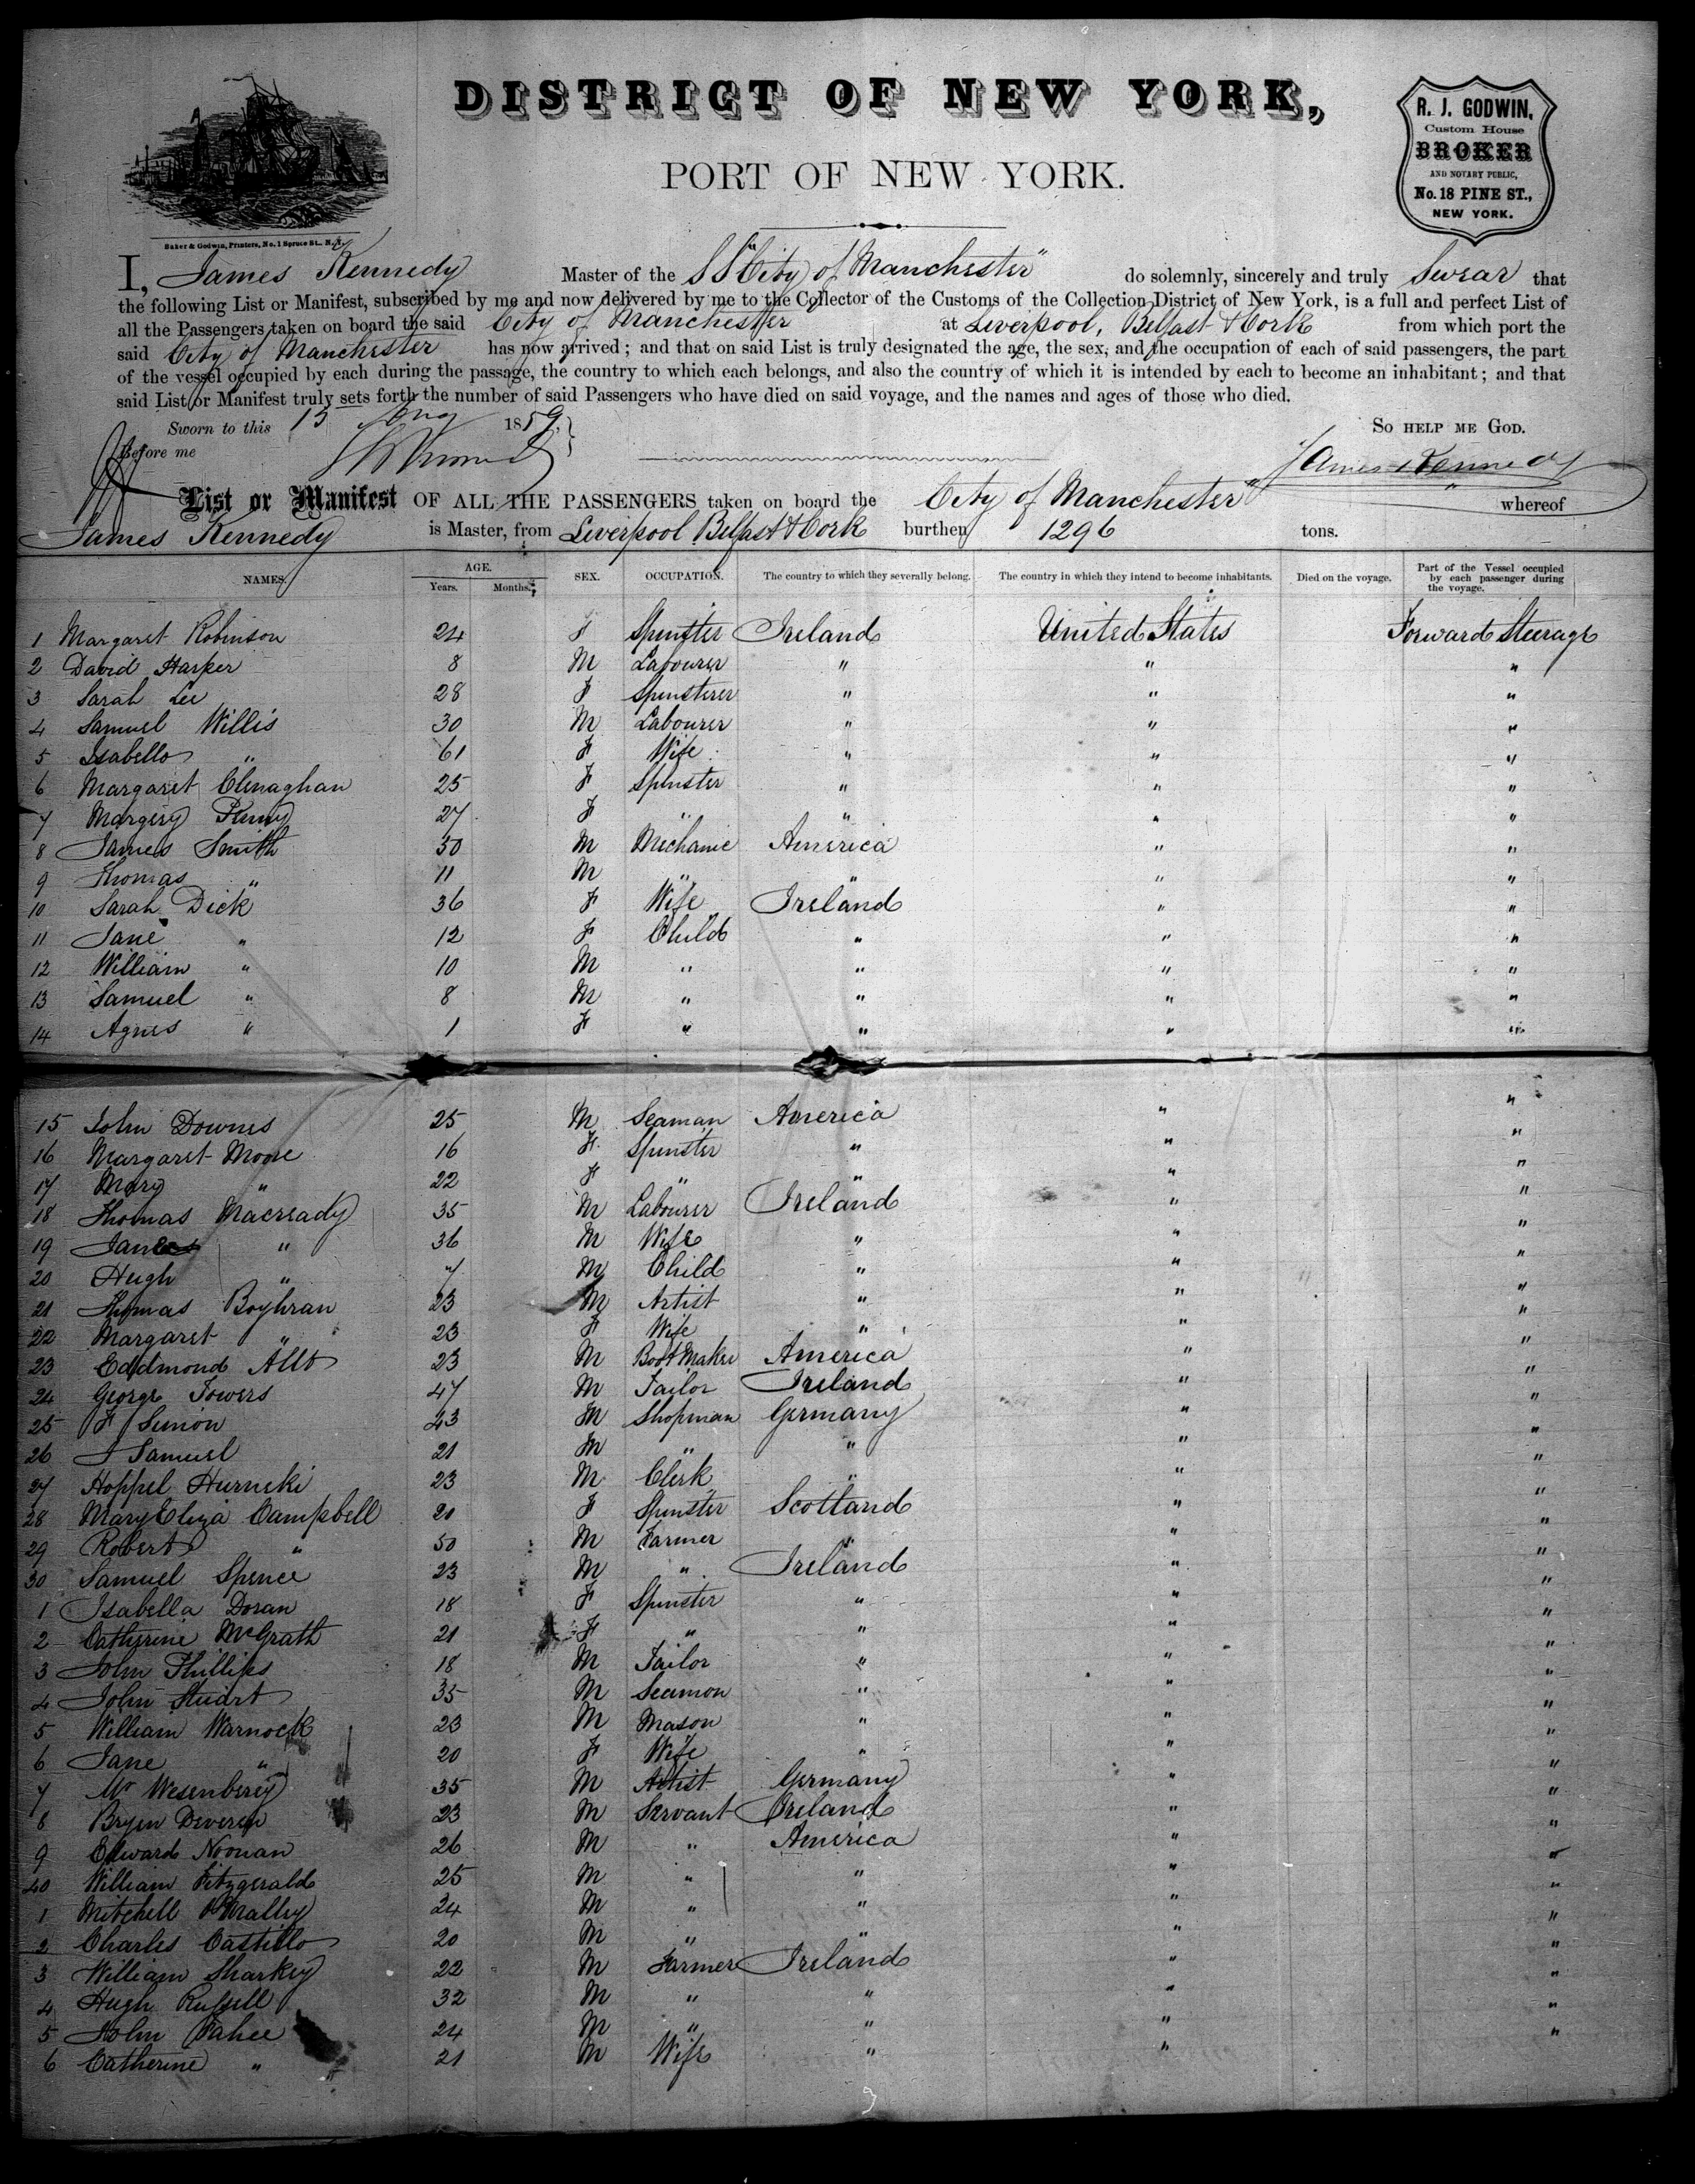 DISTRICT OF NEW YORK,
PORT OF NEW YORK.
R. J. GODWIN,
Custom House
BROKER
AND NOTARY PUBLIC,
No. 18 PINE ST.,
NEW YORK.
Baker & Godwin, Printers, No. 1 Spruce St., N. Y.
I, James Kennedy Master of the SS "City of Manchester" do solemnly, sincerely and truly Swear that
the following List or Manifest, subscribed by me and now delivered by me to the Collector of the Customs of the Collection District of New York, is a full and perfect List of
all the Passengers taken on board the said City of Manchester at Liverpool, Belfast & Cork from which port the
said City of Manchester has now arrived; and that on said List is truly designated the age, the sex, and the occupation of each of said passengers, the part
of the vessel occupied by each during the passage, the country to which each belongs, and also the country of which it is intended by each to become an inhabitant; and that
said List or Manifest truly sets forth the number of said Passengers who have died on said voyage, and the names and ages of those who died.
Sworn to this 15 Aug 1859. So HELP ME GOD.
Before me James Kennedy
List or Manifest OF ALL THE PASSENGERS taken on board the City of Manchester" whereof
James Kennedy is Master, from Liverpool Belfast & Cork burthen 1296 tons.
NAMES. AGE. Years. Months. SEX. OCCUPATION. The country to which they severally belong. The country in which they intend to become inhabitants. Died on the voyage. Part of the Vessel occupied by each passenger during the voyage.
1 Margaret Robinson 24 F Spinster Ireland United States Forward Steerage
2 David Harper 8 M Labourer " " "
3 Sarah Lee 28 F Spinsterer " " "
4 Samuel Willis 30 M Labourer " " "
5 Isabello " 61 F Wife " " "
6 Margaret Clenaghan 25 F Spinster " " "
7 Margery 27 F " " " "
8 James Smith 30 M Mechanic America " "
9 Thomas " 11 M " " " "
10 Sarah Dick 36 F Wife Ireland " "
11 Jane " 12 F Child " " "
12 William " 10 M " " " "
13 Samuel " 8 M " " " "
14 Agnes " 1 F " " " "
15 John Downes 25 M Seaman America " "
16 Margaret Moore 16 F Spinster " " "
17 Mary " 22 F " " " "
18 Thomas Macready 35 M Labourer Ireland " "
19 Jane " 36 M Wife " " "
20 Hugh " 7 M Child " " "
21 Thomas Boyhran 23 M Artist " " "
22 Margaret " 23 F Wife " " "
23 Eddmond Allt 23 M Boot Maker America " "
24 George Towers 47 M Tailor Ireland " "
25 F Simon 43 M Shopman Germany " "
26 J Samuel 21 M " " " "
27 Hoppel Hurneki 23 M Clerk " " "
28 Mary Eliza Campbell 20 F Spinster Scotland " "
29 Robert " 50 M Farmer " " "
30 Samuel Spence 23 M " Ireland " "
1 Isabella Doran 18 F Spinster " " "
2 Catherine McGrath 21 F " " " "
3 John Phillips 18 M Tailor " " "
4 John Stuart 35 M Seamon " " "
5 William Warnock 23 M Mason " " "
6 Jane " 20 F Wife " " "
7 Mr Wesenberey 35 M Artist Germany " "
8 Bryen Deveren 23 M Servant Ireland " "
9 Edward Noonan 26 M " America " "
40 William Fitzgerald 25 M " " " "
1 Mitchell O'Malley 24 M " " " "
2 Charles Castillo 20 M " " " "
3 William Sharkey 22 M Farmer Ireland " "
4 Hugh Russell 32 M " " " "
5 John Fahee 24 M " " " "
6 Catherine " 21 M Wife " "